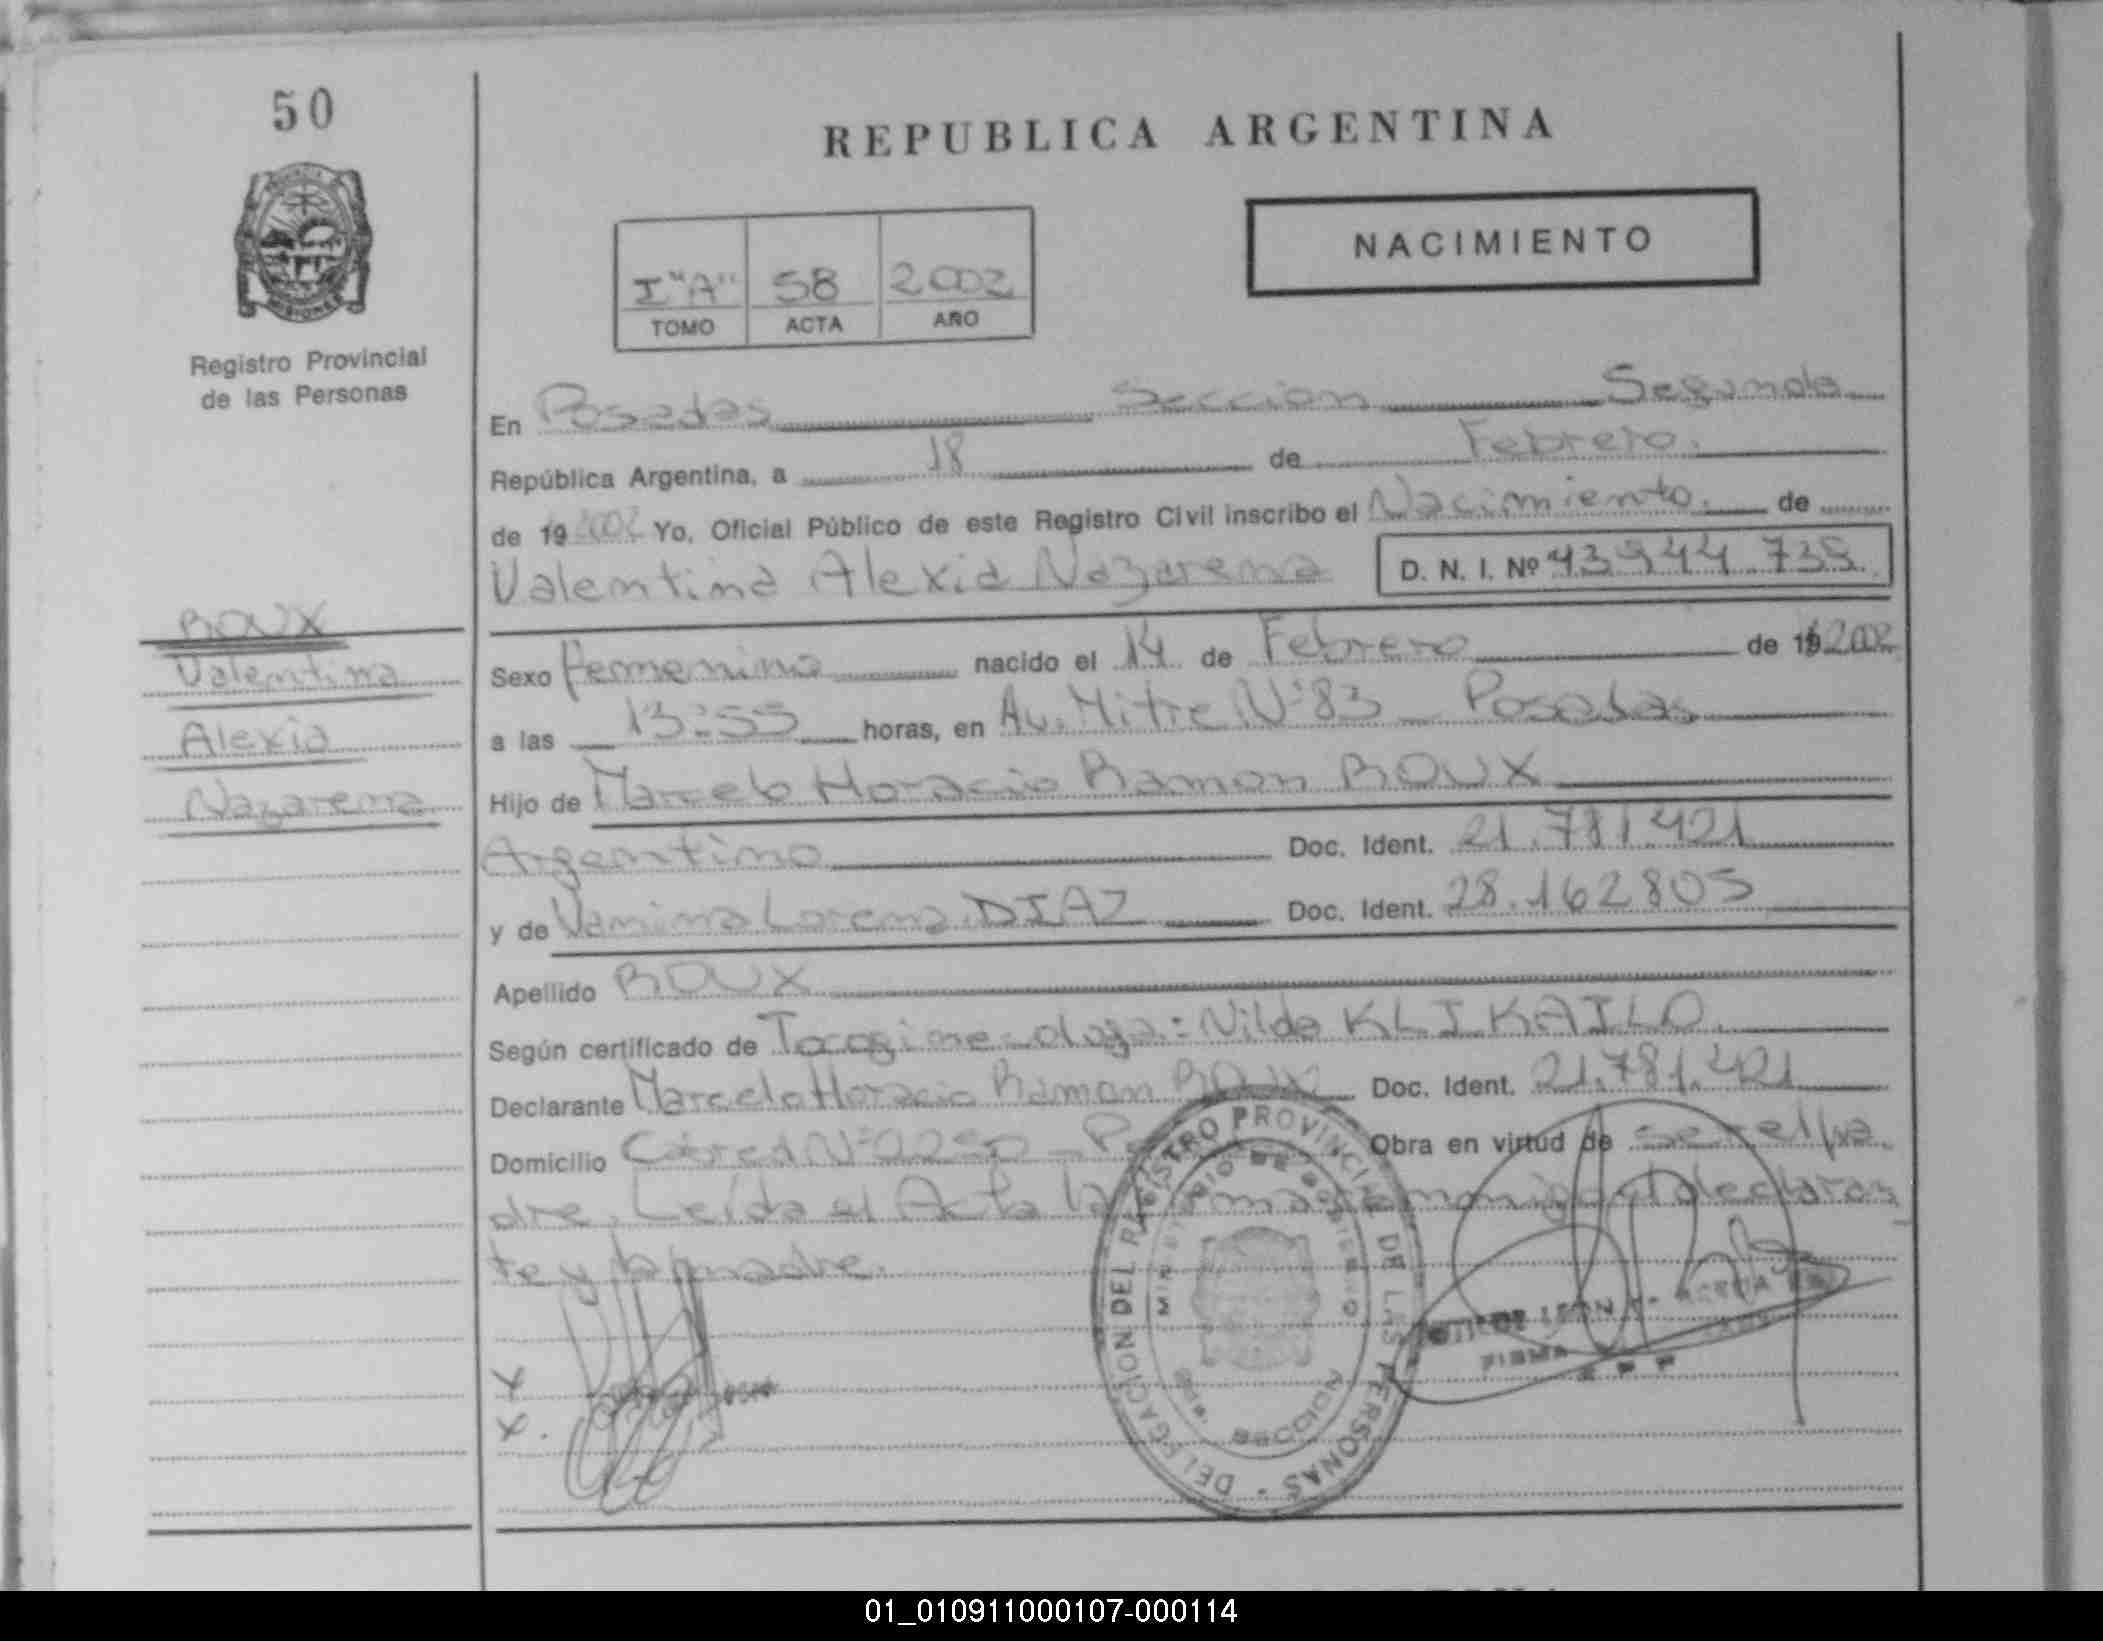 50
REPUBLICA ARGENTINA
NACIMIENTO
I "A" 58 2002
TOMO ACTA AÑO
Registro Provincial
de las Personas
En Posadas Seccion Segunda
República Argentina, a 18 de Febrero.
de 19 2002 Yo, Oficial Público de este Registro Civil inscribo el Nacimiento. de
Valentina Alexia Nazarena D. N. I. Nº 43.944.735
ROUX
Valentina
Alexia
Nazarena
Sexo femenino nacido el 14 de Febrero de 19 2002
a las 13:55 horas, en Av. Mitre Nº 83 Posadas
Hijo de Marcelo Horacio Ramon ROUX
Argentino Doc. Ident. 21.781.421
y de Vanina Lorena DIAZ Doc. Ident. 28.162805
Apellido ROUX
Según certificado de Tocoginecologa: Nilda KLIKAILO
Declarante Marcelo Horacio Ramon ROUX Doc. Ident. 21.781.421
Domicilio Nº Obra en virtud de ser el pa
dre. Leída el Acta la firma conmigo el declaran
te y la madre.
X
X.
DELEGACION DEL REGISTRO PROVINCIAL DE LAS PERSONAS
MINISTERIO DE GOBIERNO
SECCION
DE LEON
FIRMA
01_010911000107-000114